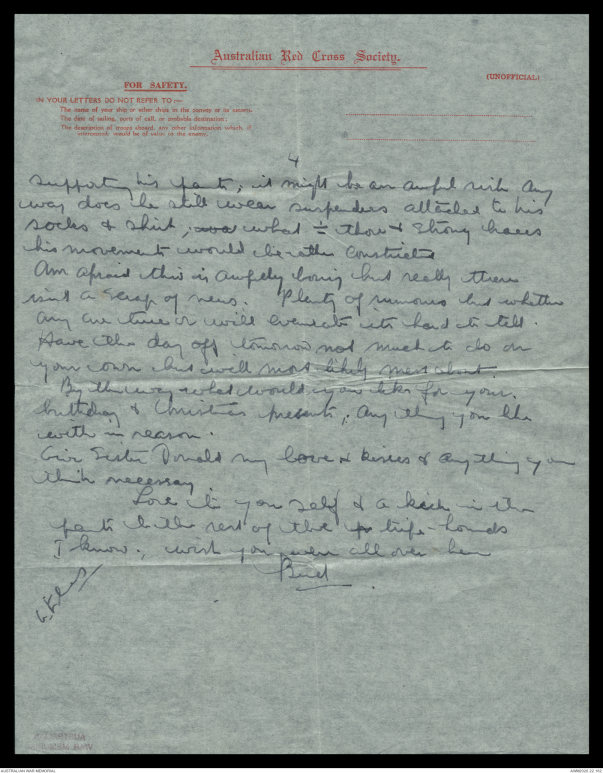 Australian Red Cross Society.
(UNOFFICIAL)
FOR SAFETY.
IN YOUR LETTERS DO NOT REFER TO :—
The name of your ship or other ships in the convoy or its escorts.
The date of sailing, ports of call, or probable destination;
The description of troops aboard, any other information which, if
intercepted, would be of value to the enemy.
4
supporting his pants, it might be an awful risk Any
way does he still wear suspenders attached to his
socks & shirt, what ÷ those & strong braces
his movements would be rather constricted
Am afraid this is awfully boring but really there
isnt a scrap of news. Plenty of rumours but whether
any are true or will eventuate its hard to tell.
Have the day off tomorrow not much to do on
your own but will most likely mess about
By the way what would you like for your
birthday & Christmas presents, Any thing you like
with in reason.
Give Sister Donald my love & kisses & anything you
think necessary
Love to you self & a kick in the
pants to the rest of the tripe-hounds
I know, wish you were all over here
Bud
AUSTRALIAN WAR MEMORIAL